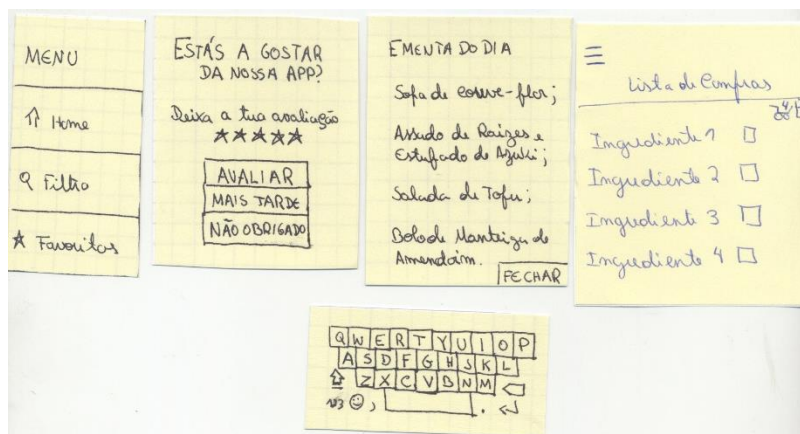 MENU
Home
Filtro
Favoritos
ESTÁS A GOSTAR
DA NOSSA APP?
Deixa a tua avaliação
AVALIAR
MAIS TARDE
NÃO OBRIGADO
EMENTA DO DIA
Sopa de couve-flor;
Assado de Raízes e
Estufado de Azuki;
Salada de Tofu;
Bolo de Manteiga de
Amendoim.
FECHAR
Lista de Compras
Ingrediente 1
Ingrediente 2
Ingrediente 3
Ingrediente 4
Q W E R T Y U I O P
A S D F G H J K L
Z X C V B N M
123 , .